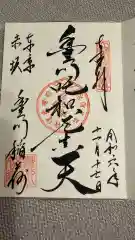 奉拝
豊川吒枳尼真天
令和六年
十一月十七日
東京
赤坂
豊川稲荷